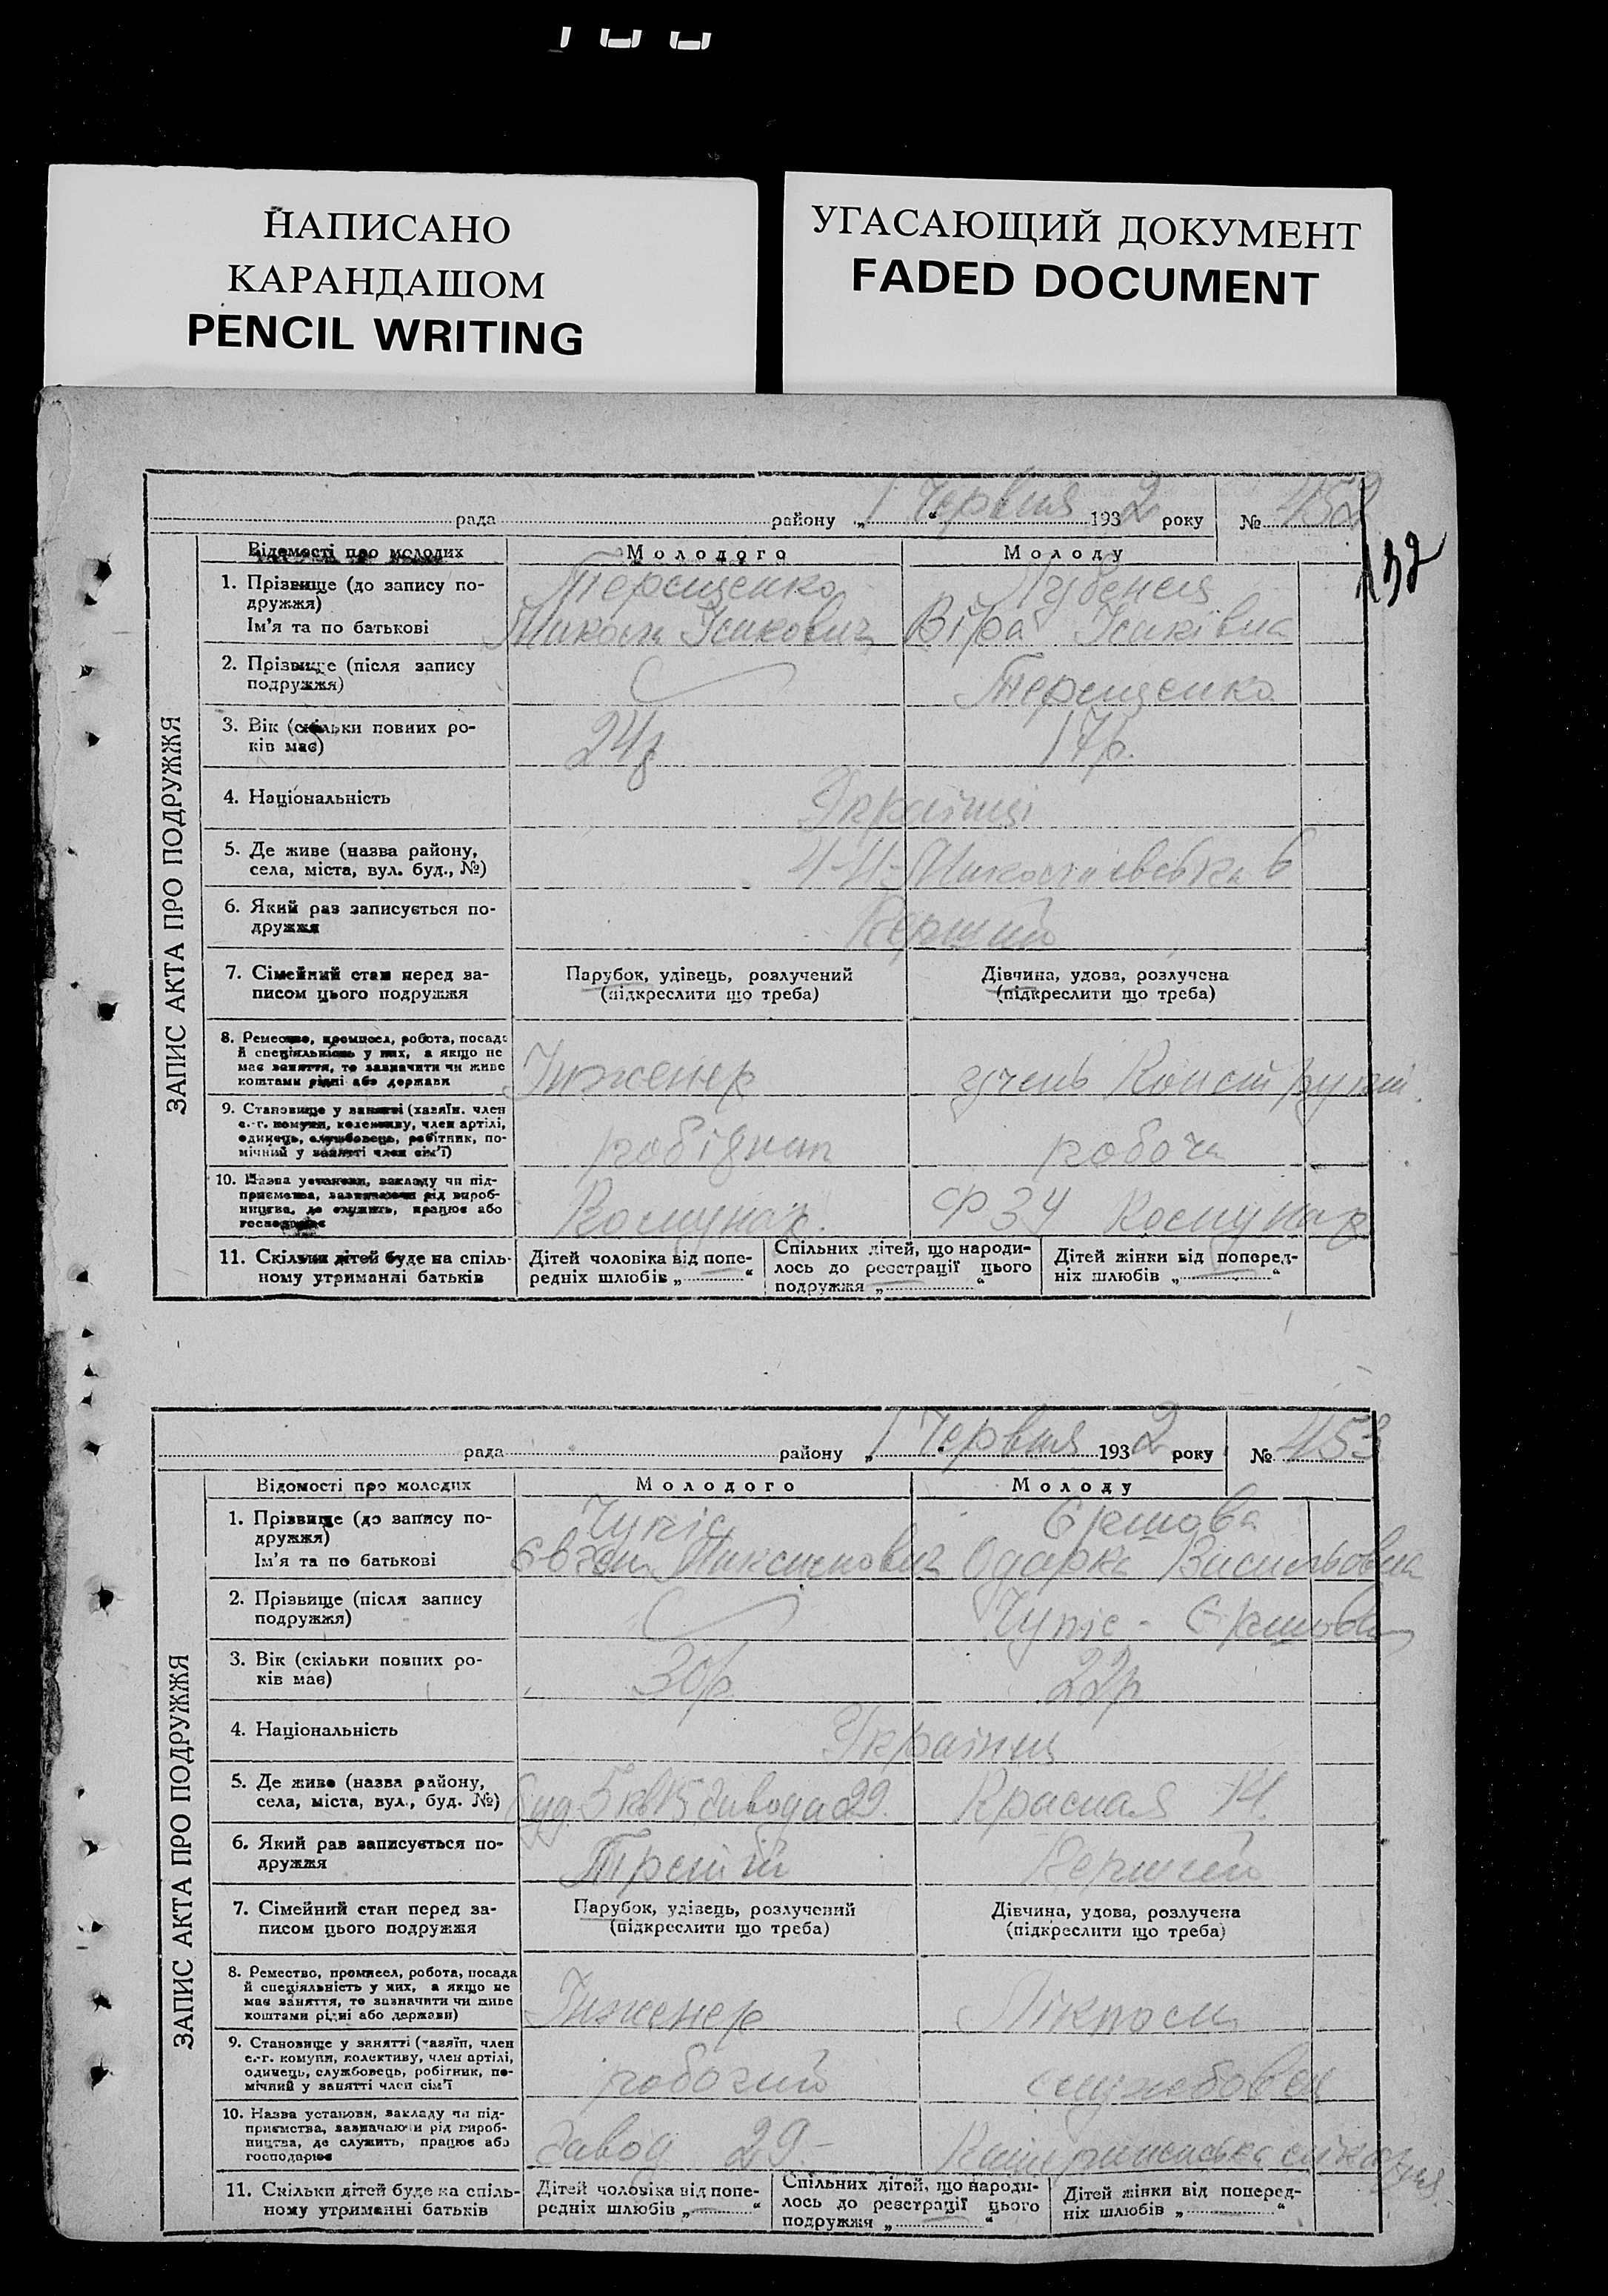 НАПИСАНО
КАРАНДАШОМ
PENCIL WRITING
УГАСАЮЩИЙ ДОКУМЕНТ
FADED DOCUMENT
рада района „1 Червня 1932 року № 452
132
ЗАПИС АКТА ПРО ПОДРУЖЖЯ
Відомості про молодих Молодого Молоду
1. Прізвище (до запису по- Терещенко
дружжя)
Ім'я та по батькові Микола Ісакович Віра Ісаківна
2. Прізвище (після запису
подружжя) Терещенко
3. Вік (скільки повних ро- 24р 17р.
ків має)
4. Національність Українці
5. Де живе (назва району,
села, міста, вул. буд., №) Миколаївська 6
6. Який раз записується по- Перший
дружжя
7. Сімейний стан перед за- Парубок, удівець, розлучений Дівчина, удова, розлучена
писом цього подружжя (підкреслити що треба) (підкреслити що треба)
8. Ремество, промисел, робота, посада
й спеціяльність у них, а якщо не
має заняття, то зазначити чи живе
коштами рідні або держави Інженер учень
9. Становище у занятті (хазяїн, член
с.-г. комуни, колективу, член артілі,
одинець, службовець, робітник, по-
мічний у занятті член сім'ї) робоча
10. Назва установи, закладу чи під-
приємства, зазначаючи рід вироб-
ництва, де служить, працює або
господарює Комунар. ФЗУ Комунар
11. Скільки дітей буде на спіль-
ному утриманні батьків
Дітей чоловіка від попе-
редніх шлюбів „ “
Спільних дітей, що народи-
лось до реєстрації цього
подружжя „ “
Дітей жінки від поперед-
ніх шлюбів „ “
рада району „1 Червня 1932 року № 453
ЗАПИС АКТА ПРО ПОДРУЖЖЯ
Відомості про молодих Молодого Молоду
1. Прізвище (до запису по- Чупіс Єршова
дружжя)
Ім'я та по батькові Євген Максимович Одарка Васильовна
2. Прізвище (після запису
подружжя) Чупіс - Єршова
3. Вік (скільки повних ро- 30р. 22р
ків має)
4. Національність Українці
5. Де живе (назва району,
села, міста, вул., буд. №) буд. 5 кв 15 завода 29. Красная 14.
6. Який раз записується по- Третій Перший
дружжя
7. Сімейний стан перед за- Парубок, удівець, розлучений Дівчина, удова, розлучена
писом цього подружжя (підкреслити що треба) (підкреслити що треба)
8. Ремество, промисел, робота, посада
й спеціяльність у них, а якщо не
має заняття, то зазначити чи живе
коштами рідні або держави) Інженер Лікпом
9. Становище у занятті (хазяїн, член
с.-г. комуни, колективу, член артілі,
одинець, службовець, робітник, по-
мічний у занятті член сім'ї робочий службовец
10. Назва установи, закладу чи під-
приємства, зазначаючи рід вироб-
ництва, де служить, працює або
господарює завод 29 -
11. Скільки дітей буде на спіль-
ному утриманні батьків
Дітей чоловіка від попе-
редніх шлюбів „ “
Спільних дітей, що народи-
лось до реєстрації цього
подружжя „ “
Дітей жінки від поперед-
ніх шлюбів „ “